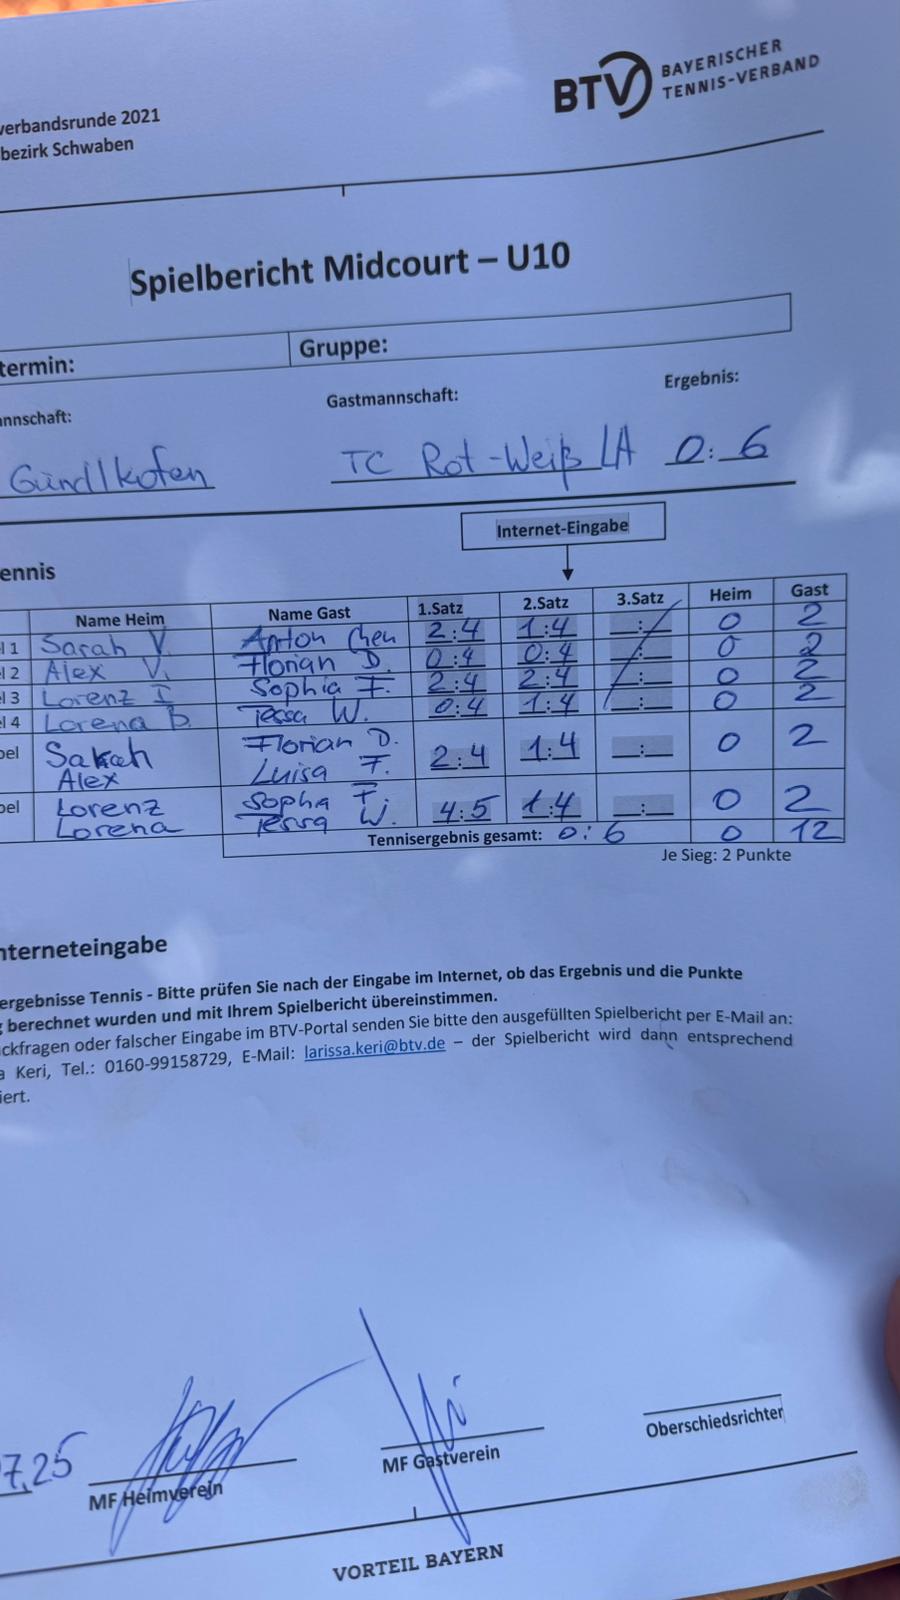 BTV BAYERISCHER
TENNIS-VERBAND
verbandsrunde 2021
bezirk Schwaben
Spielbericht Midcourt – U10
termin: Gruppe:
annschaft: Gastmannschaft: Ergebnis:
Gündlkofen TC Rot-Weiß LA 0:6
Internet-Eingabe
ennis
Name Heim Name Gast 1.Satz 2.Satz 3.Satz Heim Gast
l 1 Sarah V. Anton Chen 2:4 1:4 : 0 2
l 2 Alex V. Florian D. 0:4 0:4 : 0 2
l 3 Lorenz I Sophia F. 2:4 2:4 : 0 2
l 4 Lorena D. Tessa W. 0:4 1:4 : 0 2
pel Sarah Florian D. 2:4 1:4 : 0 2
Alex Luisa F.
pel Lorenz Sopha F 4:5 1:4 : 0 2
Lorena Tessa W.
Tennisergebnis gesamt: 0:6 0 12
Je Sieg: 2 Punkte
nterneteingabe
ergebnisse Tennis - Bitte prüfen Sie nach der Eingabe im Internet, ob das Ergebnis und die Punkte
g berechnet wurden und mit Ihrem Spielbericht übereinstimmen.
ckfragen oder falscher Eingabe im BTV-Portal senden Sie bitte den ausgefüllten Spielbericht per E-Mail an:
a Keri, Tel.: 0160-99158729, E-Mail: larissa.keri@btv.de – der Spielbericht wird dann entsprechend
iert.
7.25
MF Heimverein MF Gastverein Oberschiedsrichter
VORTEIL BAYERN